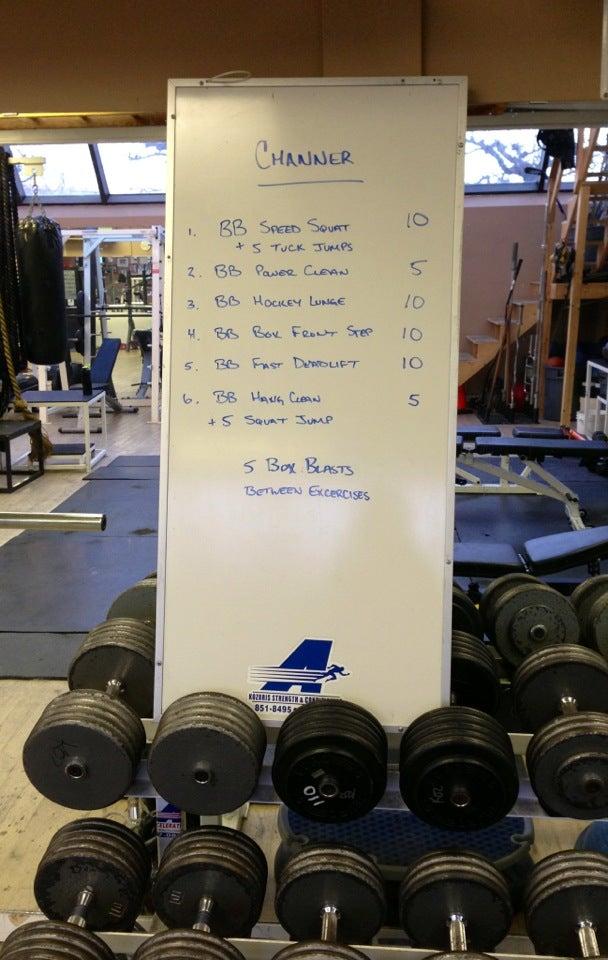 CHANNER
1. BB SPEED SQUAT 10
+ 5 TUCK JUMPS
2. BB POWER CLEAN 5
3. BB HOCKEY LUNGE 10
4. BB BOX FRONT STEP 10
5. BB FAST DEADLIFT 10
6. BB HANG CLEAN 5
+ 5 SQUAT JUMP
5 BOX BLASTS
BETWEEN EXCERCISES
KOZORIS STRENGTH &
851-8495
110